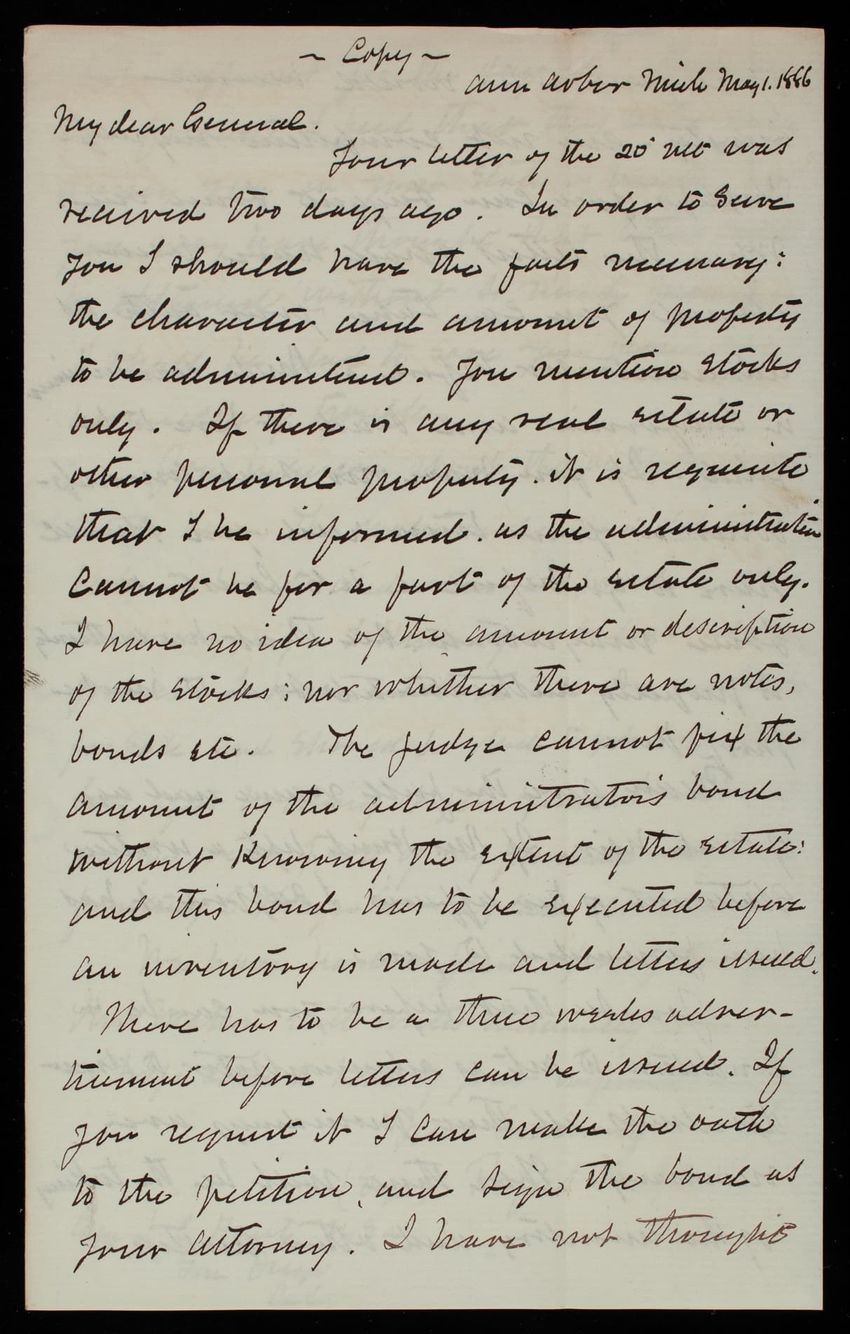 ~ Copy ~
Ann Arbor Mich May 1. 1886
My dear General.
Your letter of the 20" ult was
received two days ago. In order to serve
you I should have the facts necessary:
the character and amount of property
to be administered. You mention stocks
only. If there is any real estate or
other personal property. it is requisite
that I be informed. as the administration
cannot be for a part of the estate only.
I have no idea of the amount or description
of the stocks; nor whether there are notes,
bonds etc. The judge cannot fix the
amount of the administrator's bond
without knowing the extent of the estate:
and this bond has to be executed before
an inventory is made and letters issued.
There has to be a three weeks adver-
tisement before letters can be issued. If
you request it I can make the oath
to the petition, and sign the bond as
your attorney. I have not thought